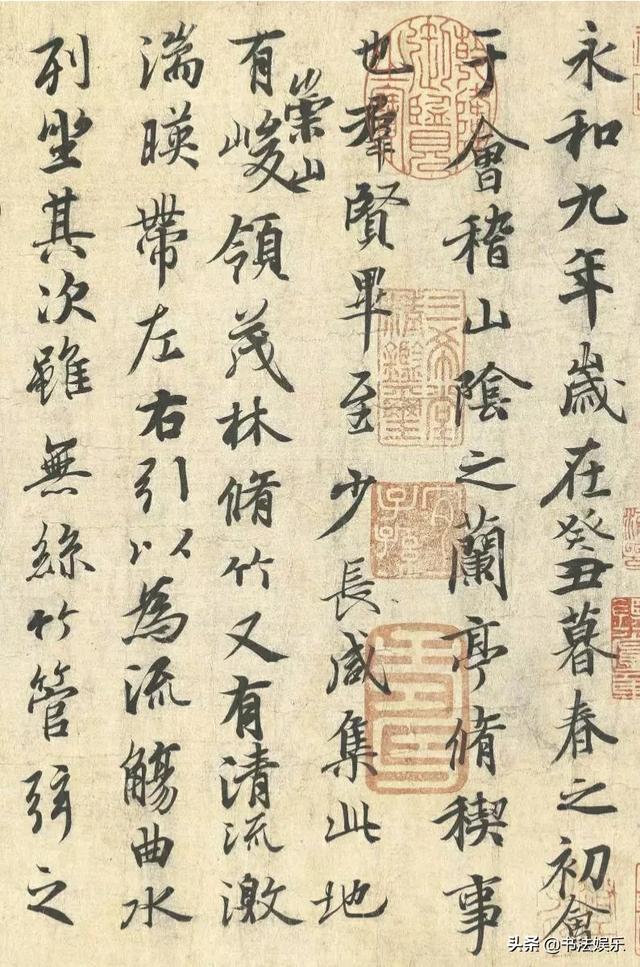 永和九年歲在癸丑暮春之初會
于會稽山陰之蘭亭脩稧事
也羣賢畢至少長咸集此地
有崇山峻領茂林脩竹又有清流激
湍暎帶左右引以為流觴曲水
列坐其次雖無絲竹管弦之
三希堂精鑑璽
宜子孫
头条 @书法娱乐